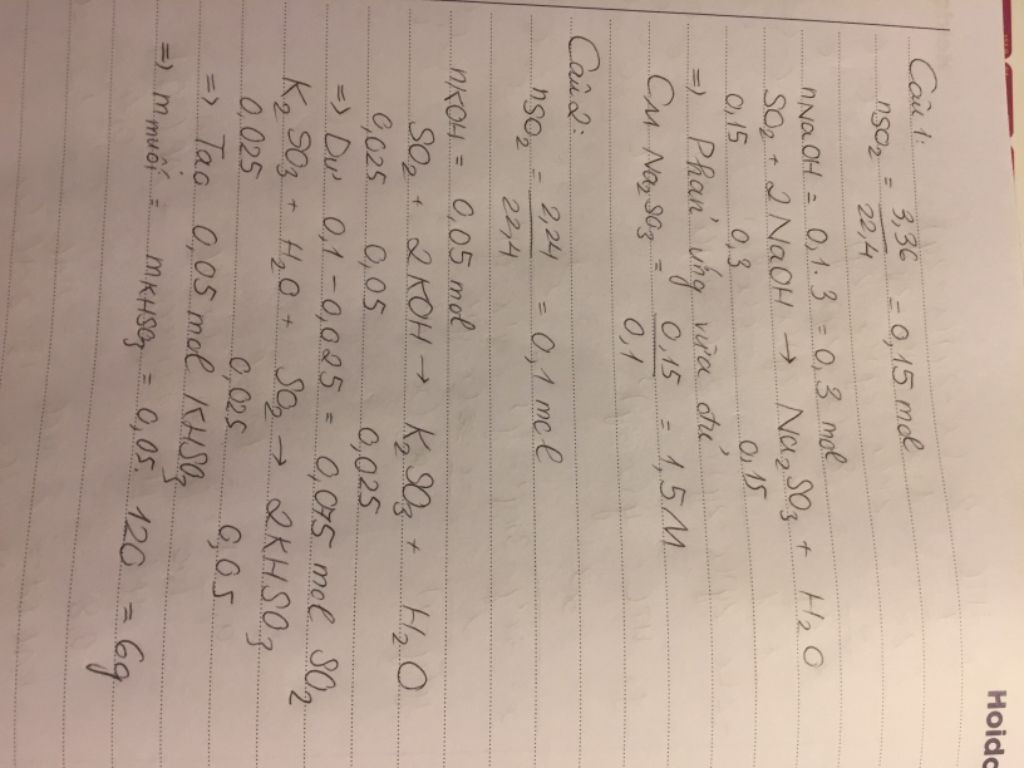 Câu 1:
nSO2 = 3,36 / 22,4 = 0,15 mol
nNaOH = 0,1.3 = 0,3 mol
SO2 + 2NaOH → Na2SO3 + H2O
0,15 0,3 0,15
=> Phản ứng vừa đủ
CM Na2SO3 = 0,15 / 0,1 = 1,5M
Câu 2:
nSO2 = 2,24 / 22,4 = 0,1 mol
nKOH = 0,05 mol
SO2 + 2KOH → K2SO3 + H2O
0,025 0,05 0,025
=> Dư 0,1 - 0,025 = 0,075 mol SO2
K2SO3 + H2O + SO2 → 2KHSO3
0,025 0,025 0,05
=> Tạo 0,05 mol KHSO3
=> mmuối = mKHSO3 = 0,05.120 = 6g
Hoidc